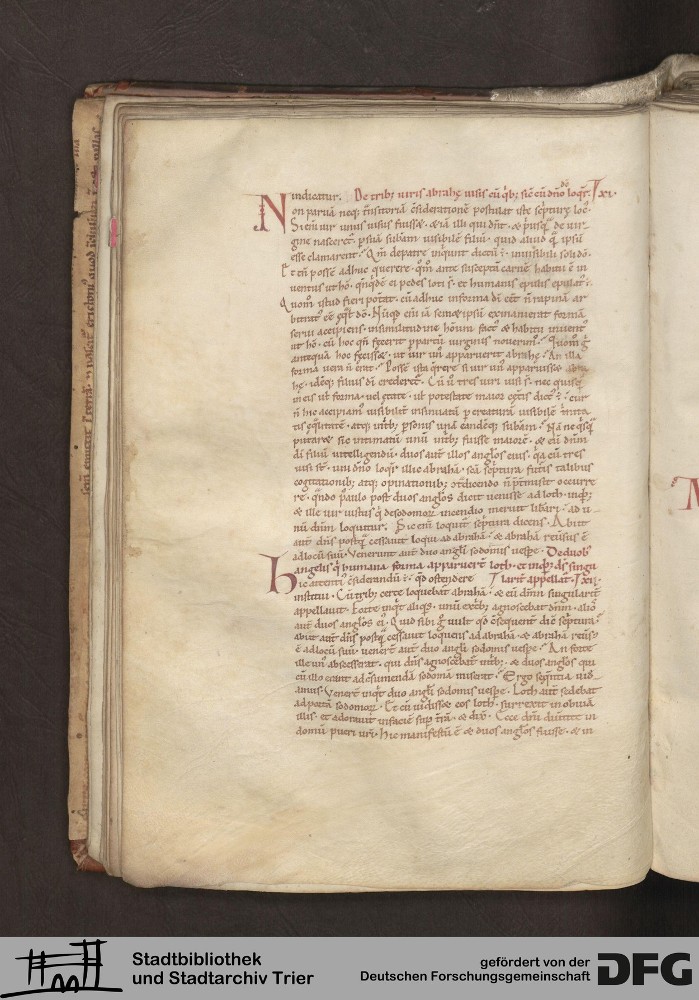 uindicatur. De trib; uiris abrahę uisis cū qb; sic cū dn̄o do loqr̄. Txi.
Non paruā neq; trāsitoriā c̄siderationē postulat iste scpturę loc̄.
Si enī uir unus uisus fuisset & iā illi qui dn̄t & priusq̄ de uir
gine nasceret̄ p suā substan̄ uisibile filiū quid aliud q̄ ipsū
esse clamarent. Qm̄ de patre inquiunt dictū ē inuisibili soli dō.
Et tn̄ possē adhuc querere qm̄ ante susceptā carnē habitu ē in
uentus ut hō. qn̄qdē ei pedes loti s̄ et humanis epulis epulat̄.
Quom̄ istud fieri poterat cū adhuc in forma dī eēt n̄ rapinā ar
bitrat̄ eē equat̄ dō. Nūqd enī iā semetipsū exinanierat formā
serui accipiens in similitudine hōinū fact̄ & habitu inuent̄
ut hō. cū hoc qn̄ fecerit p partū uirginis nouerim̄. Quom̄ g
antequā hoc fecisset ut uir un̄ apparuerit abrahę. An illa
forma uera n̄ erat. Possē ista q̄rere si uir un̄ apparuisset abra
hę. idēq; filius dī crederet̄. Cū ū tres uiri uisi s̄ nec quisq̄
in eis uel forma uel etate uel potestate maior cęteris dict̄ ē cur
n̄ hic accipiam̄ uisibilit̄ insinuatā p creaturā uisibilē trinita
tis equalitatē. atq; in trib; p̄sonis unā eandēq; substan̄. Nā ne qsq̄
putaret sic intimatū unū in trib; fuisse maiorē & eū dn̄m
dī filiū intelligendū duos aut̄ illos anglos eius q̄a cū tres
uisi st̄ uni dn̄o loqr̄ illic abrahā. scā scptura futuris talibus
cogitationib; atq; opinationib; ctradicendo n̄ ptermisit occurre
re. qn̄do paulo post duos anglos dicit uenisse ad loth. in qb;
& ille uir iustus q̄ de sodomor̄ incendio meruit liberari ad u
nū dn̄m loquitur. Sic enī loquit̄ scptura dicens. Abiit
aut̄ dn̄s postq̄ cessauit loqui ad abrahā & abrahā reuersus ē
ad locū suū. Venerunt aut̄ duo angli sodomis uespe. De duob;
angelis q̄ humana forma apparuerē loth. et in qb; dīs singu
Hic attenti c̄siderandū ē qd ostendere larit̄ appellat. Txii.
institui. Cū trib; certe loquebat̄ abrahā & eū dn̄m singularit̄
appellauit. Forte inqt aliqs unū ex trib; agnoscebat dn̄m alios
aut̄ duos anglos ei. Quid sibi g uult qd c̄sequent̄ dic̄ scptura.
abiit aut̄ dn̄s postq̄ cessauit loquens ad abrahā & abrahā reuers̄
ē ad locū suū. uener̄t aut̄ duo angli sodomis uespe. An forte
ille un̄ abscesserat qui dn̄s agnoscebat̄ in trib; & duos anglos qui
cū illo erant ad c̄sumendā sodomā miserat. Ergo sequentia uid
amus. Venert̄ inqt duo angli sodomis uespe. Loth aut̄ sedebat
ad portā sodomor̄. Et cū uidisset eos loth surrexit in obuiā
illis. et adorauit in faciē sup trā & dix̄. Ecce dn̄i diuertite in
domū pueri uri. hic manifestū ē & duos anglos fuisse & in
Stadtbibliothek
und Stadtarchiv Trier
gefördert von der
Deutschen Forschungsgemeinschaft
DFG